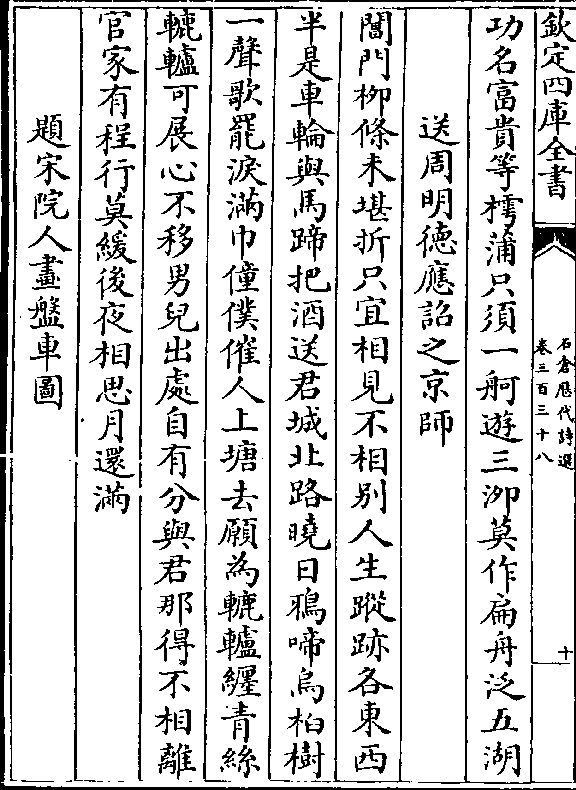 欽定四庫全書
石倉歷代詩選
卷三百三十八
十
功名富貴等樗蒲只須一舸遊三泖莫作扁舟泛五湖
送周明德應詔之京師
閶門柳條未堪折只宜相見不相别人生蹤跡各東西
半是車輪與馬蹄把酒送君城北路曉日鴉啼烏桕樹
一聲歌罷淚滿巾僮僕催人上塘去願為轆轤纒青絲
轆轤可展心不移男兒出處自有分與君那得不相離
官家有程行莫緩後夜相思月還滿
題宋院人畫盤車圖